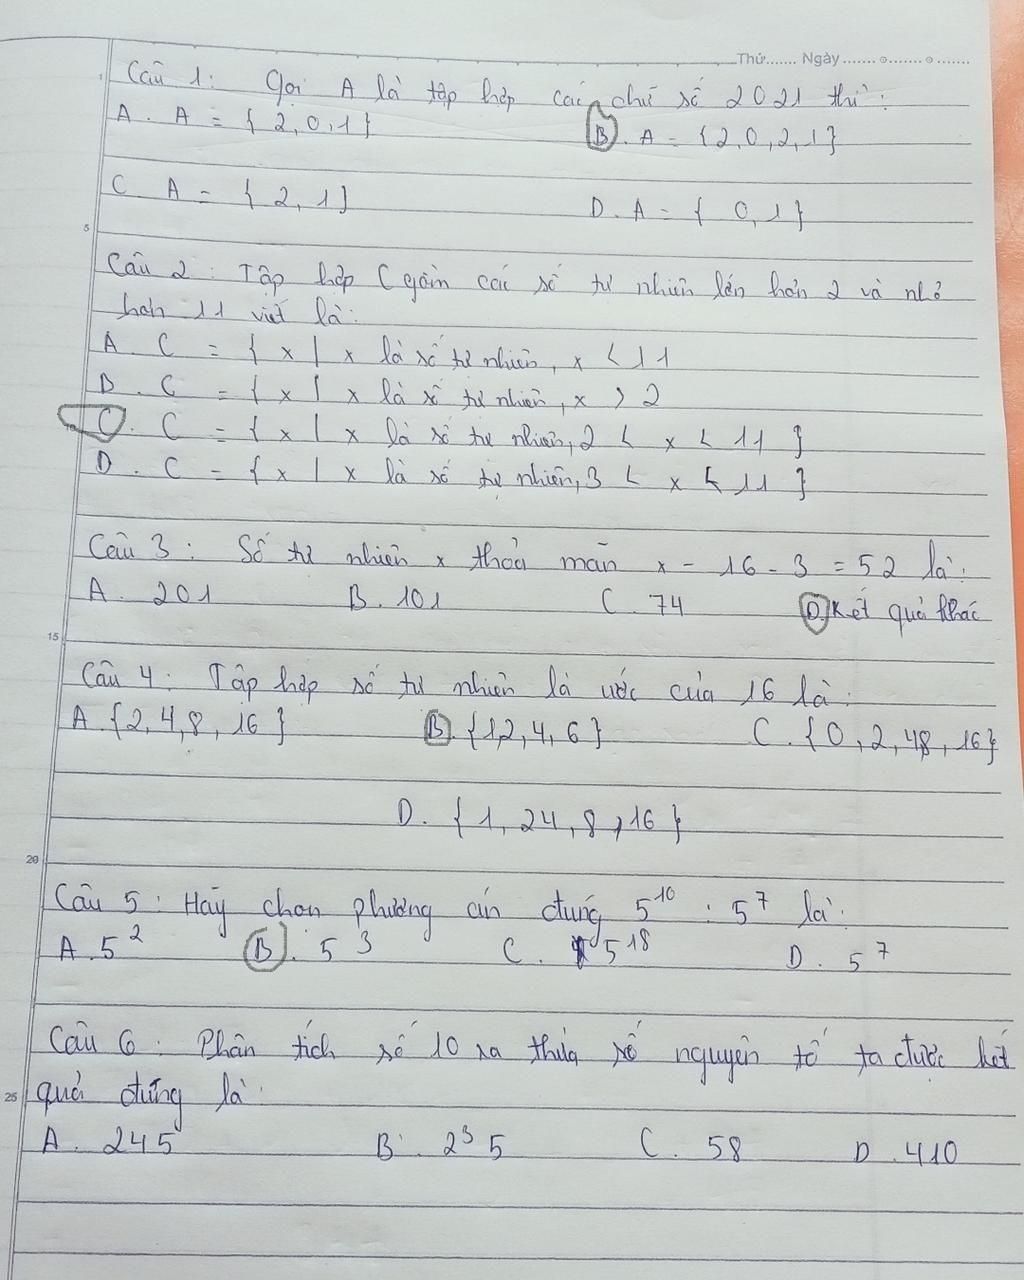 Thứ....... Ngày ....... o........ o .......
Câu 1: Gọi A là tập hợp các chữ số 2021 thì:
A. A = { 2, 0, 1 }  B. A = { 2, 0, 2, 1 }
C A = { 2, 1 }  D. A = { 0, 1 }
5
Câu 2: Tập hợp C gồm các số tự nhiên lớn hơn 2 và nhỏ
hơn 11 viết là:
A. C = { x | x là số tự nhiên, x < 11
B. C = { x | x là số tự nhiên, x > 2
C. C = { x | x là số tự nhiên, 2 < x < 11 }
D. C = { x | x là số tự nhiên, 3 < x < 11 }
Câu 3: Số tự nhiên x thỏa mãn x - 16 - 3 = 52 là:
A. 201  B. 101  C. 74  D. Kết quả khác
15
Câu 4: Tập hợp số tự nhiên là ước của 16 là:
A. {2, 4, 8, 16 }  B. {1,2, 4, 6 }  C. {0, 2, 48, 16}
D. { 1, 24, 8, 16 }
20
Câu 5: Hãy chọn phương án đúng 5¹⁰ : 5⁷ là:
A. 5²  B. 5³  C. 5¹⁸  D. 5⁷
Câu 6: Phân tích số 10 ra thừa số nguyên tố ta được kết
25 quả đúng là:
A. 245  B. 2³ 5  C. 58  D. 410